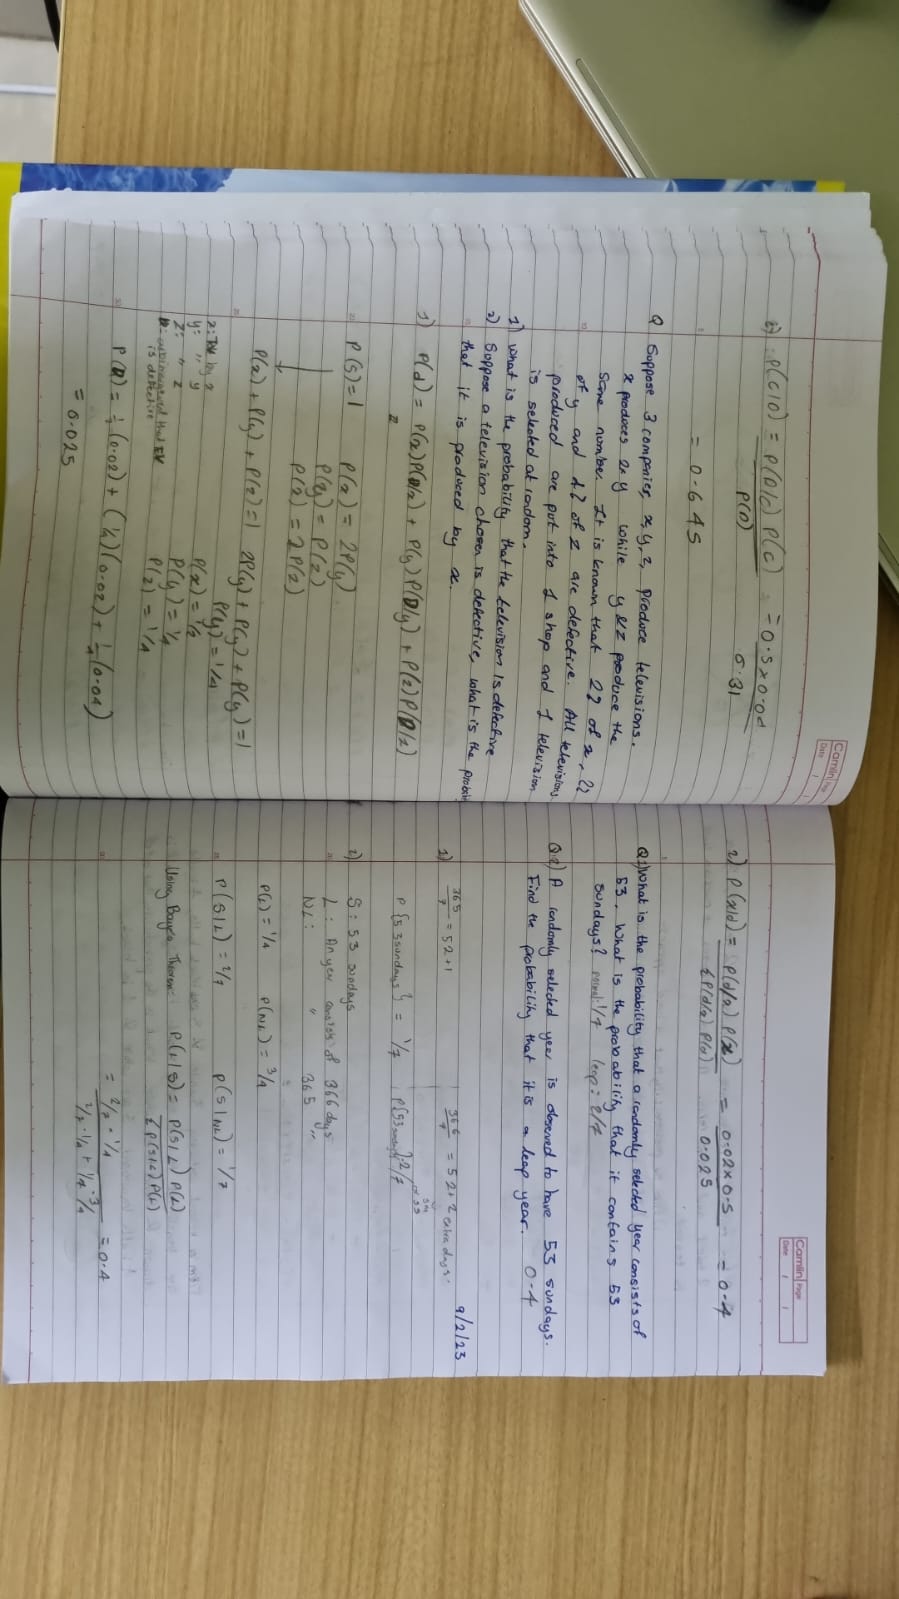 Camlin Page
Date / /
3) P(C|D) = P(D|C) P(C) = 0.5 x 0.04
P(D) 0.31
= 0.645
Q Suppose 3 companies, x, y, z, produce televisions.
x produces 2x y while y & z produce the
same number. It is known that 2% of x, 2%
of y and 4% of z are defective. All televisions
produced are put into 1 shop and 1 television
is selected at random.
1) What is the probability that the television is defective
2) Suppose a television chosen is defective, what is the probabi
that it is produced by x.
1) P(d) = P(x)P(D/x) + P(y)P(D/y) + P(z)P(D/z)
P(S)=1 P(x) = 2P(y)
P(y) = P(z)
P(x) = 2P(z)
P(x) + P(y) + P(z) = 1 2P(y) + P(y) + P(y) = 1
P(y) = 1/4
x: TV by x P(x) = 1/2
y: " y P(y) = 1/4
z: " z P(z) = 1/4
is defective
P(D) = 1/2 (0.02) + (1/4)(0.02) + 1/4 (0.04)
= 0.025
Camlin Page
Date / /
2) P(x|d) = P(d/x) P(x) = 0.02 x 0.5 = 0.4
ΣP(d/x) P(x) 0.025
Q1) What is the probability that a randomly selected year consists of
53. What is the probability that it contains 53
sundays? normal: 1/7 leap = 2/7
Q.2) A randomly selected year is observed to have 53 sundays.
Find the probability that it is a leap year. 0.4
9/2/23
1) 365/7 = 52+1 366/7 = 52+2 extra days.
P{53 sundays} = 1/7 P{53 sundays} = 2/7
2) S: 53 sundays
L: An year consists of 366 days
NL: " 365 "
P(L) = 1/4 P(NL) = 3/4
P(S|L) = 2/7 P(S|NL) = 1/7
Using Baye's Theorem: P(L|S) = P(S|L) P(L)
ΣP(S|L) P(L)
= 2/7 · 1/4 = 0.4
2/7 · 1/4 + 1/7 · 3/4